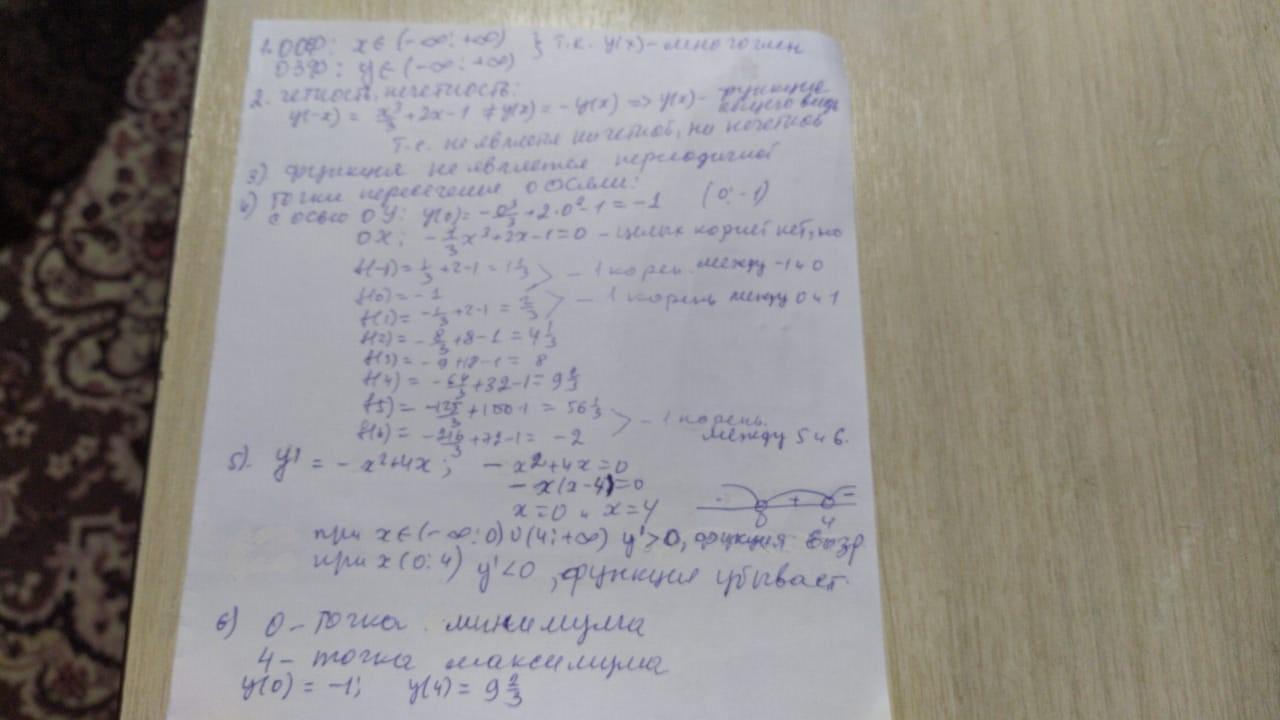 1. ООФ: x ∈ (-∞; +∞) } т.к. y(x) - многочлен
ОЗФ: y ∈ (-∞; +∞)
2. четность, нечетность:
y(-x) = x³/3 + 2x - 1 ≠ y(x) = -y(x) => y(x) - функция общего вида
т.е. не является ни четной, ни нечетной
3) функция не является периодичной
4) Точки пересечения с осями:
с осью ОУ: y(0) = -0³/3 + 2·0² - 1 = -1 (0; -1)
ОХ: -1/3 x³ + 2x - 1 = 0 - целых корней нет, но
f(-1) = 1/3 + 2 - 1 = 1 1/3 > - 1 корен. между -1 и 0
f(0) = -1
f(1) = -1/3 + 2 - 1 = 2/3 > - 1 корень между 0 и 1
f(2) = -8/3 + 8 - 1 = 4 1/3
f(3) = -9 + 18 - 1 = 8
f(4) = -64/3 + 32 - 1 = 9 2/3
f(5) = -125/3 + 100 - 1 = 56 1/3 > - 1 корень.
f(6) = -216/3 + 72 - 1 = -2 между 5 и 6.
5). y' = -x² + 4x; -x² + 4x = 0
-x(x-4) = 0
x = 0 и x = 4
- + -
0 4
при x ∈ (-∞; 0) ∪ (4; +∞) y' > 0, функция возр
при x (0; 4) y' < 0, функция убывает
6) 0 - точка минимума
4 - точка максимума
y(0) = -1; y(4) = 9 2/3